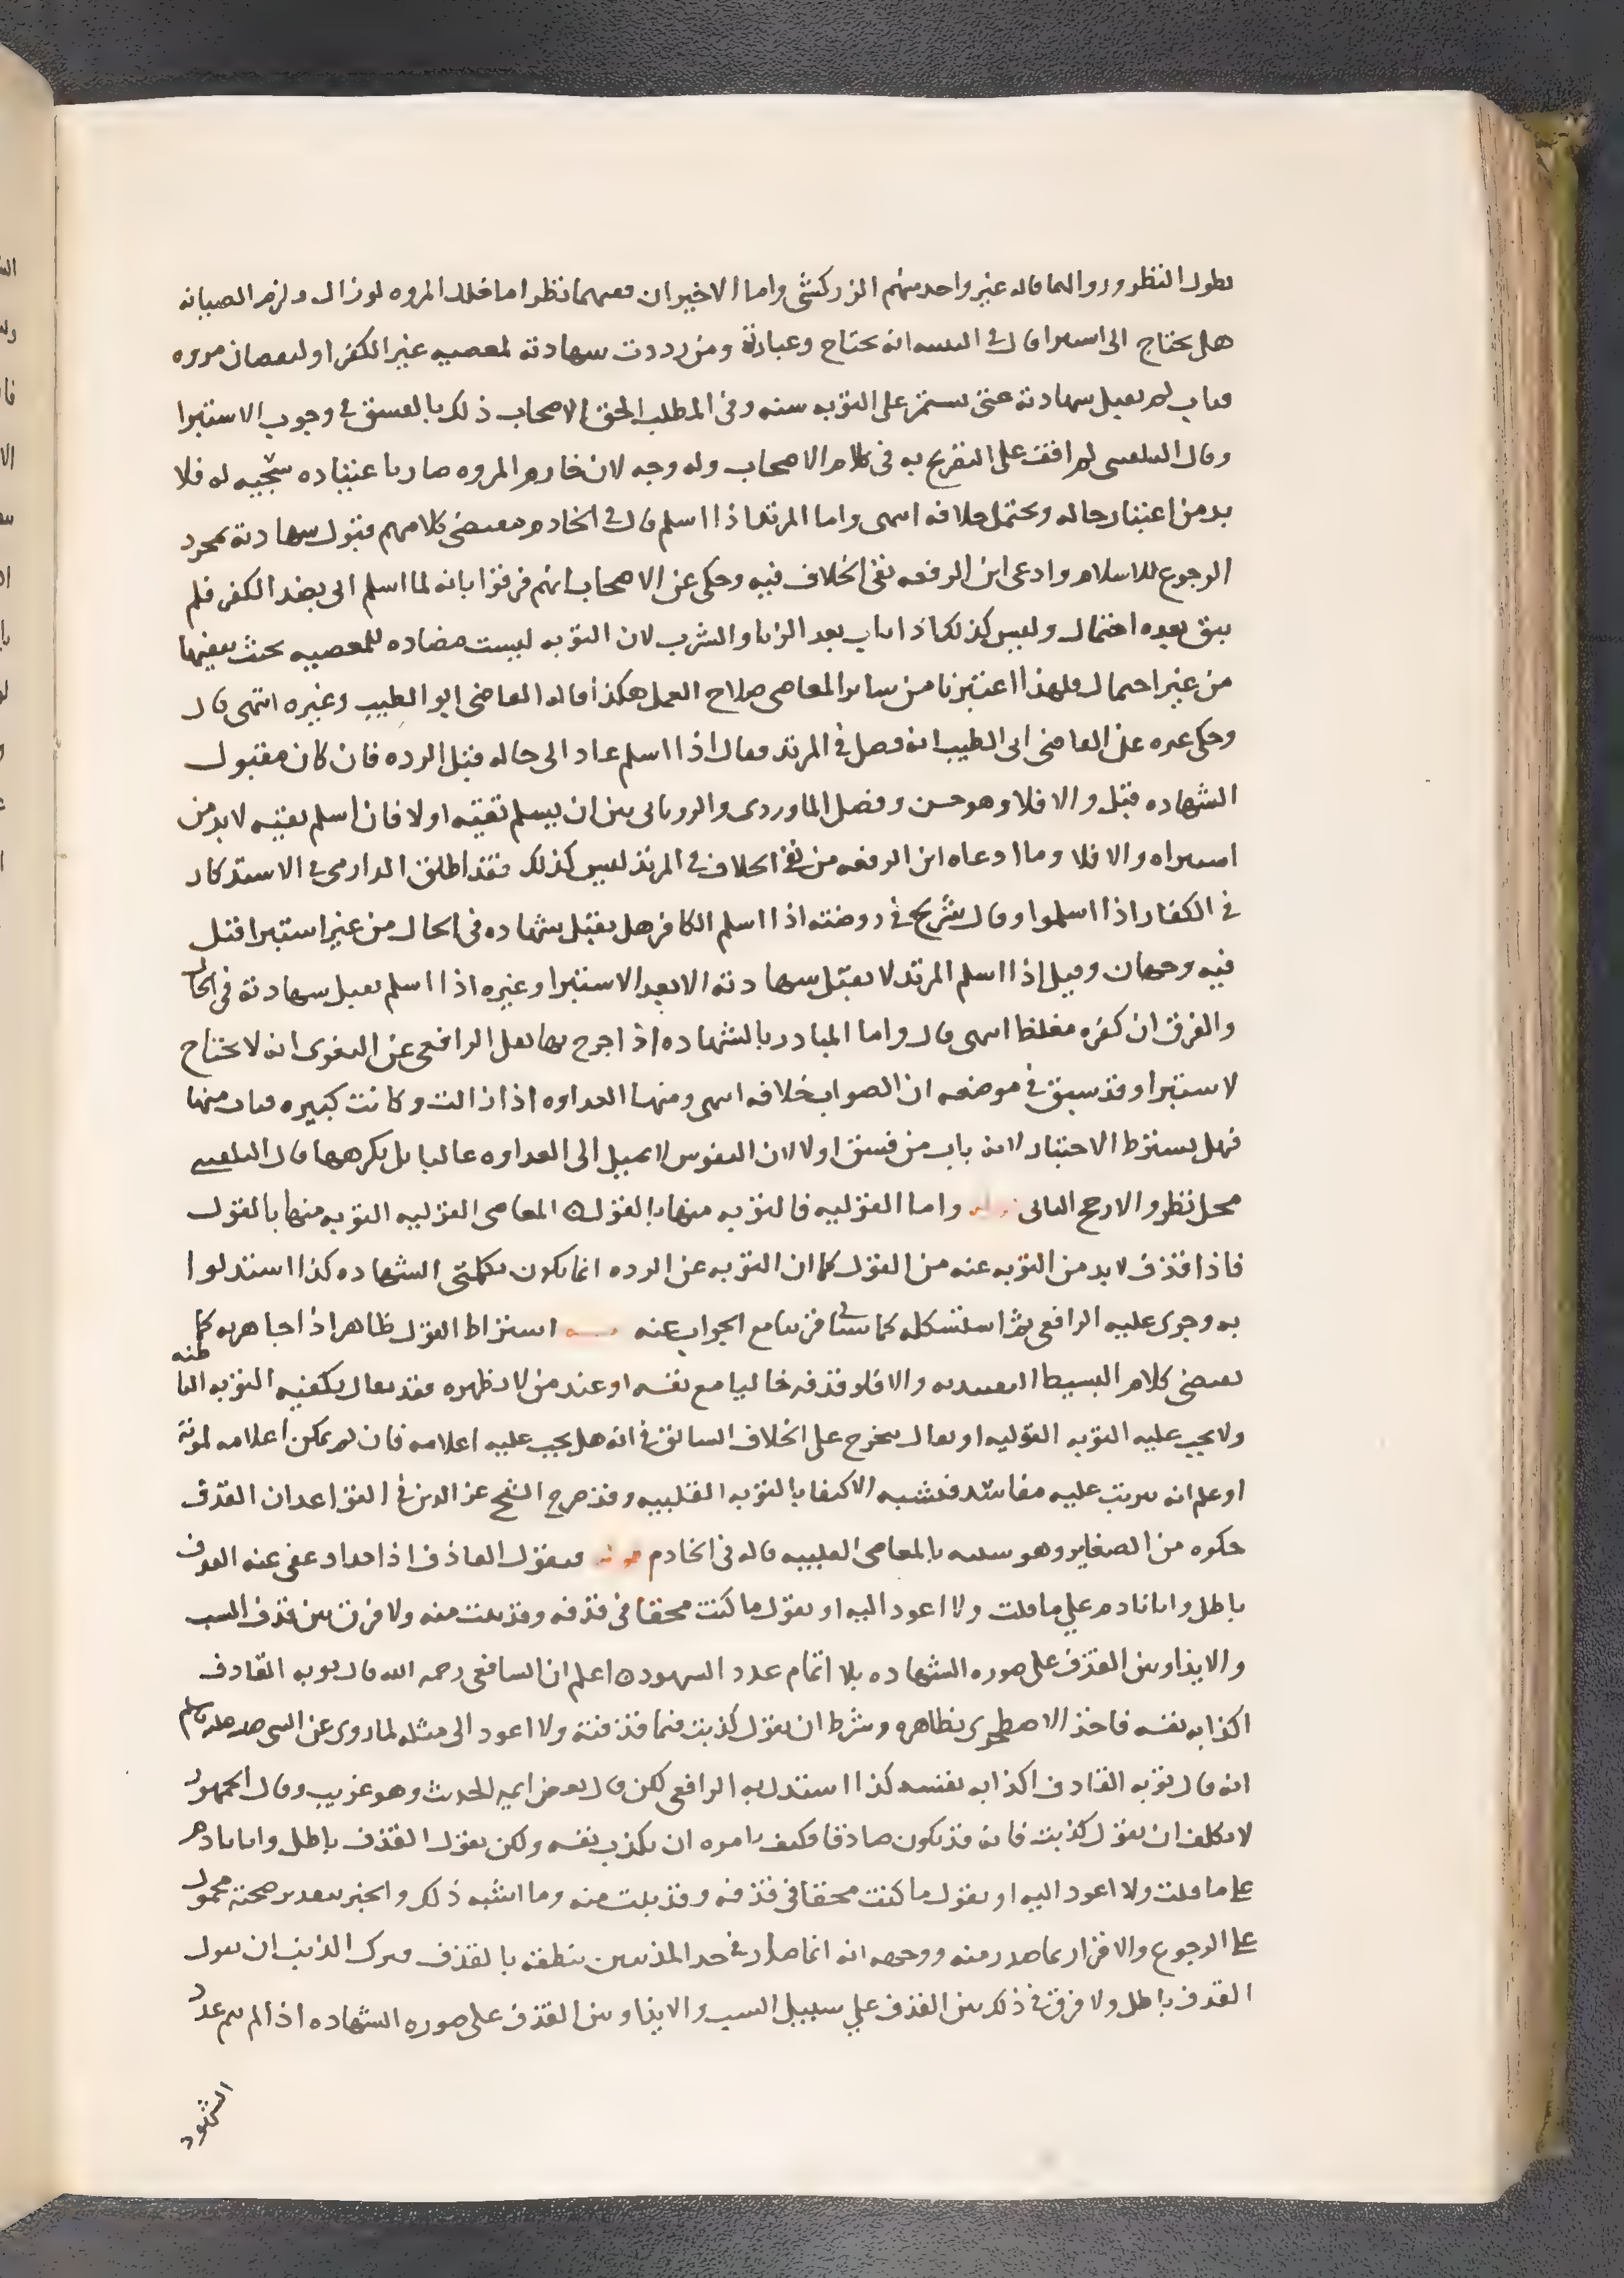 بطول النظر وروالها قاله غير واحد منهم الزركشي واما الاخيران ففيهما نظر اما فلان المروه لو زال ولزم الصيانه
هل يحتاج الى استبرا قال في التنبيه انه يحتاج وعبارته ومن ردت شهادته لمعصيه غير الكفر او لنقصان مروه
فتاب لم تقبل شهادته حتى يستمر على التوبه سنه وفي المطلب الحق الاصحاب ذلك بالفسق في وجوب الاستبرا
وقال البلقيني لم اقف على التفريع به في كلام الاصحاب وله وجه لان خارم المروه صار باعتياده سجيه له فلا
بد من اعتبار حاله ويحتمل خلافه انتهى واما المرتد اذا اسلم قال في الخادم فمقتضى كلامهم قبول شهادته بمجرد
الرجوع للاسلام وادعى ابن الرفعه نفي الخلاف فيه وحكى عن الاصحاب انهم فرقوا بانه لما اسلم اتى بضد الكفر فلم
يبق بعده احتمال وليس كذلك اذا تاب بعد الزنا والشرب لان التوبه ليست مضاده للمعصيه بحيث ينفيها
من غير احتمال فلهذا اعتبرنا من ساير المعاصي صلاح العمل هكذا قاله القاضي ابو الطيب وغيره انتهى قال
وحكى غيره عن القاضي ابي الطيب انه فصل في المرتد فقال اذا اسلم عاد الى حاله قبل الرده فان كان مقبول
الشهاده قبل والا فلا وهو حسن وفصل الماوردي والروياني بين ان يسلم تقيه او لا فان اسلم تقيه لا بد من
استبراه والا فلا وما ادعاه ابن الرفعه من نفي الخلاف في المرتد ليس كذلك فقد اطلق الدارمي في الاستذكار
في الكفار اذا اسلموا وقال شريح في روضته اذا اسلم الكافر هل يقبل شهاده في الحال من غير استبرا قيل
فيه وجهان وقيل اذا اسلم المرتد لا تقبل شهادته الا بعد الاستبرا وغيره اذا اسلم تقبل شهادته في الحال
والفرق ان كفره مغلظ انتهى قال واما المبادر بالشهاده اذا جرح بها نقل الرافعي عن البغوي انه لا يحتاج
لاستبرا وقد سبق في موضعه ان الصواب خلافه انتهى ومنها العداوه اذا زالت وكانت كبيره فتاب منها
فهل يشترط الاختبار لانه تاب من فسق اولا لان النفوس لا تميل الى العداوه غالبا بل يكرهها قال البلقيني
محل نظر والارجح الثاني واما القوليه فالتوبه منها بالقول المعاصي القوليه التوبه منها بالقول
فاذا قذف لا بد من التوبه عنه من القول كما ان التوبه عن الرده انما يكون بكلمتي الشهاده كذا استدلوا
به وجرى عليه الرافعي ثم استشكله كما سياتي قريبا مع الجواب عنه اشتراط القول ظاهر اذا جاهر به كما
يقتضي كلام البسيط والا فلو قذفه خاليا مع نفسه او عند من لا يظهره فقد يقال يكفيه التوبه الباطنه
ولا يجب عليه التوبه القوليه او يقال يخرج على الخلاف السابق في انه هل يجب عليه اعلامه فان لم يمكن اعلامه لموته
او علم انه يترتب عليه مفاسد فيشبه الاكتفا بالتوبه القلبيه وقد صرح الشيخ عز الدين في القواعد ان القذف
خلوه من الصغاير وهو شبيه بالمعاصي القلبيه قاله في الخادم فيقول القاذف اذا عفي عنه القذف
باطل وانا نادم على ما فعلت ولا اعود اليه او يقول ما كنت محقا في قذفه وقد تبت منه ولا فرق بين قذف السب
والايذا وبين القذف على صوره الشهاده بلا اتمام عدد الشهود اعلم ان الشافعي رحمه الله قال توبه القاذف
اكذابه نفسه فاخذ الاصطخري بظاهره وشرط ان يقول كذبت فيما قذفته ولا اعود الى مثله لما روي عن النبي صلى الله عليه وسلم
انه قال توبه القاذف اكذابه نفسه كذا استدل به الرافعي لكن قال بعض ايمه الحديث وهو غريب وقال الجمهور
لا يكلف ان يقول كذبت فانه قد يكون صادقا فكيف نامره ان يكذب نفسه ولكن يقول القذف باطل وانا نادم
على ما فعلت ولا اعود اليه او يقول ما كنت محقا في قذفه وقد تبت منه وما اشبه ذلك والخبر بتقدير صحته محمول
على الرجوع والاقرار بما صدر منه ووجهه انه انما صار في حد المذنبين بنطقه بالقذف فترك الذنب ان يقول
القذف باطل ولا فرق في ذلك بين القذف على سبيل السب والايذا وبين القذف على صوره الشهاده اذا لم يتم عدد
الشهود